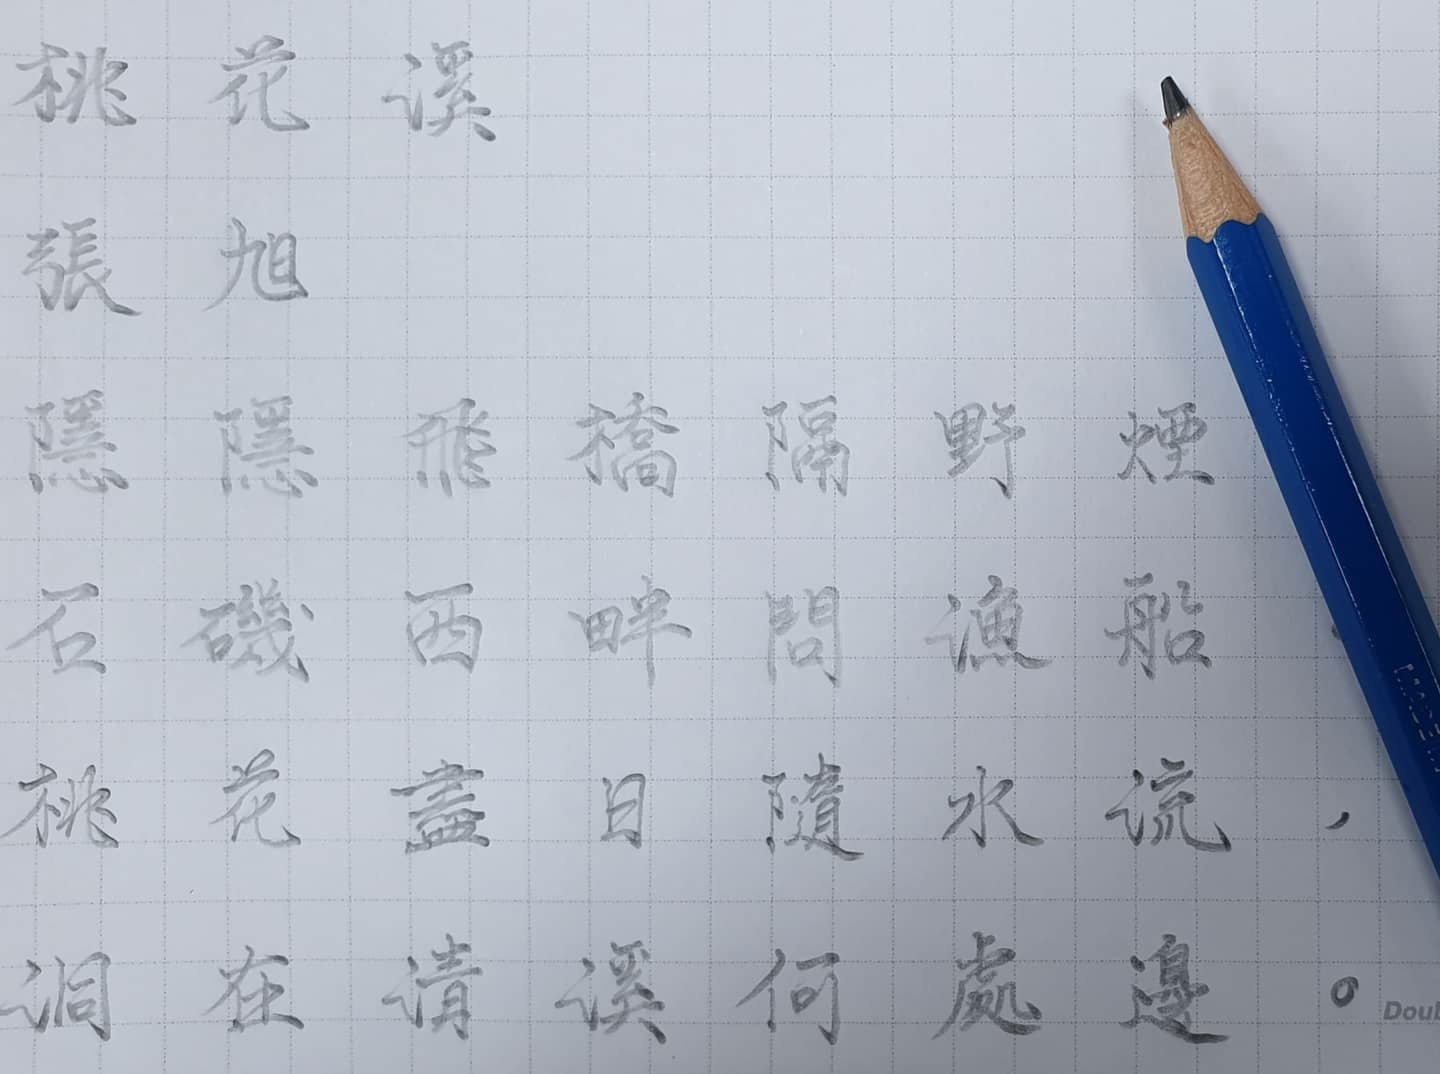 桃花溪
張旭
隱隱飛橋隔野煙
石磯西畔問漁船
桃花盡日隨水流，
洞在清溪何處邊。
Doub